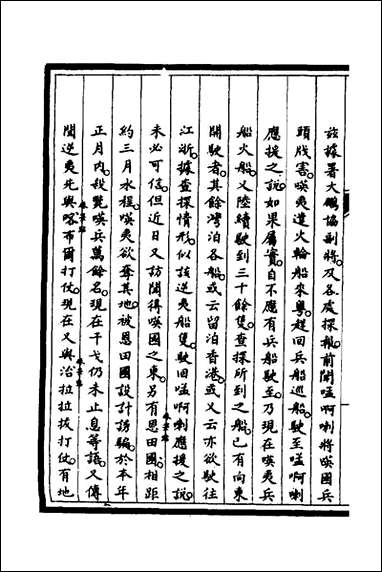 茲據署大鵬協副將及各處探報前聞嗌啊喇將㗎國兵
頭戕害㗎夷遣火輪船來粵趕回兵船巡船駛至嗌啊喇
應援之說如果屬實自不應有兵船駛至乃現在㗎夷兵
船火船又陸續駛到三十餘隻查探所到之船已有向東
開駛者其餘灣泊各船或云留泊香港或又云亦欲駛往
江浙據查探情形似該逆夷船隻駛回嗌啊喇應援之說
未必可信但近日又訪聞得㗎國之東另有恩田國相距
約三月水程㗎夷欲奪其地被恩田國設計誘騙於本年
正月內殺斃㗎兵萬餘名現在干戈仍未止息等語又傳
聞逆夷先與喀布爾打仗現在又與治拉拉拔打仗有地